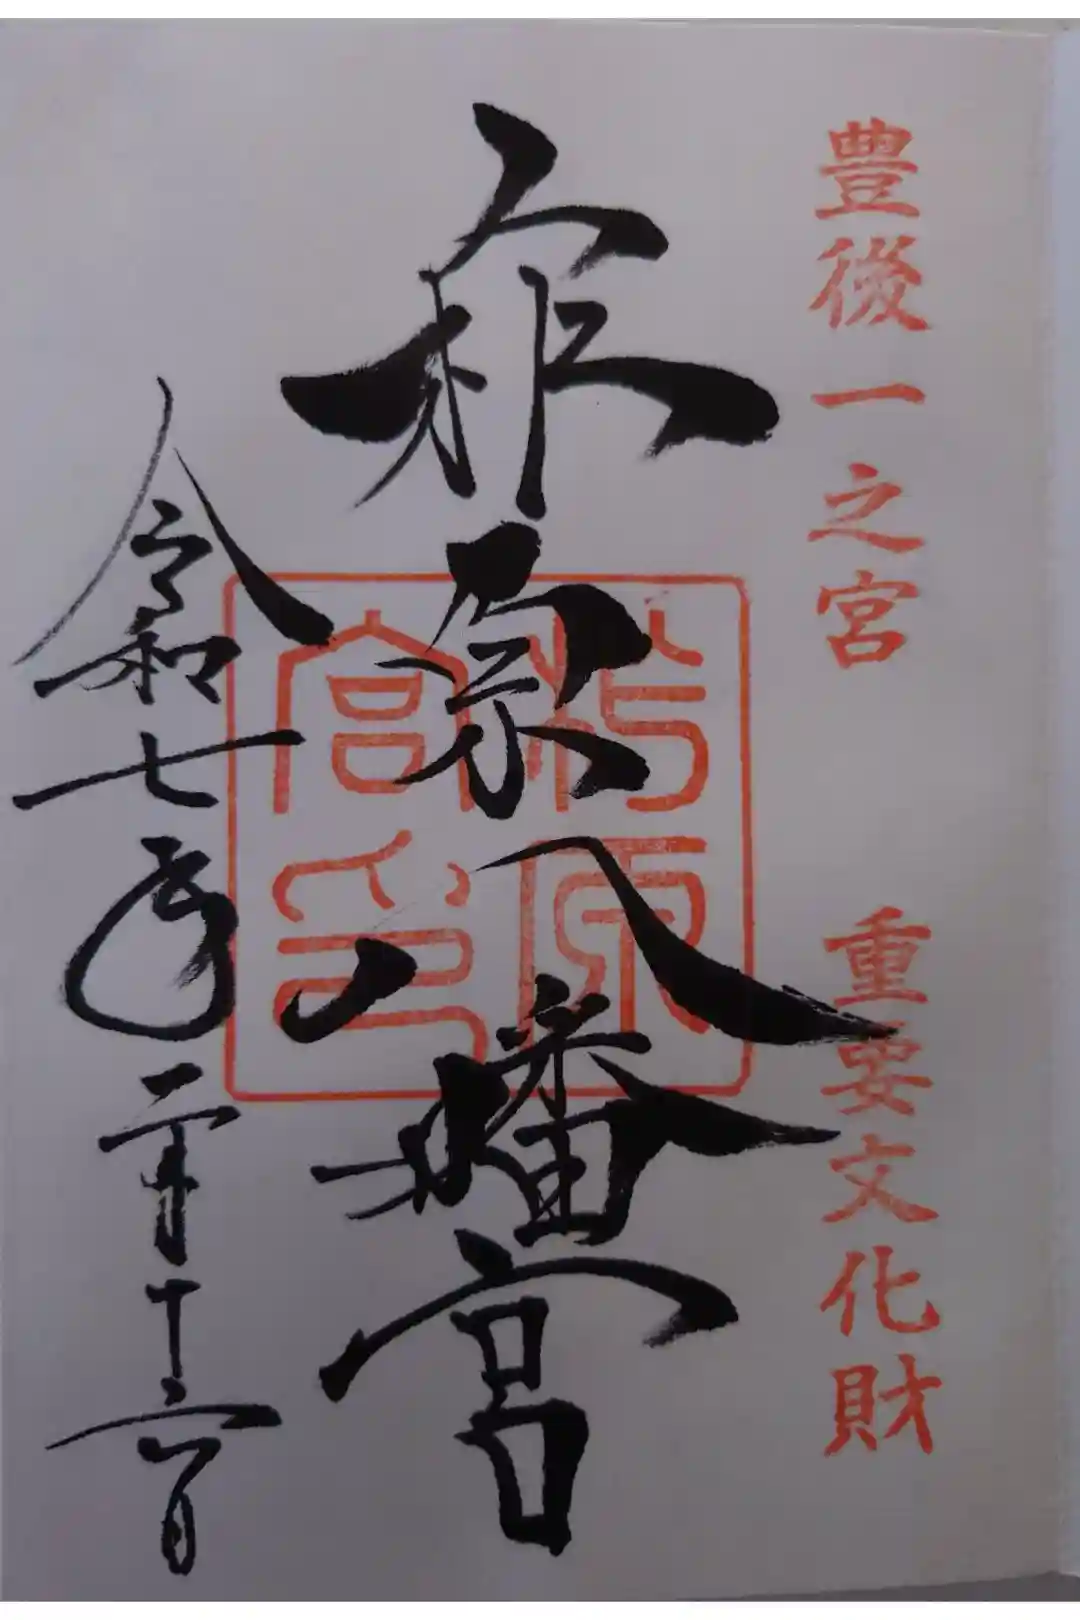 豊後一之宮 重要文化財
柞原八幡宮
柞原宮印
令和七年二月十六日